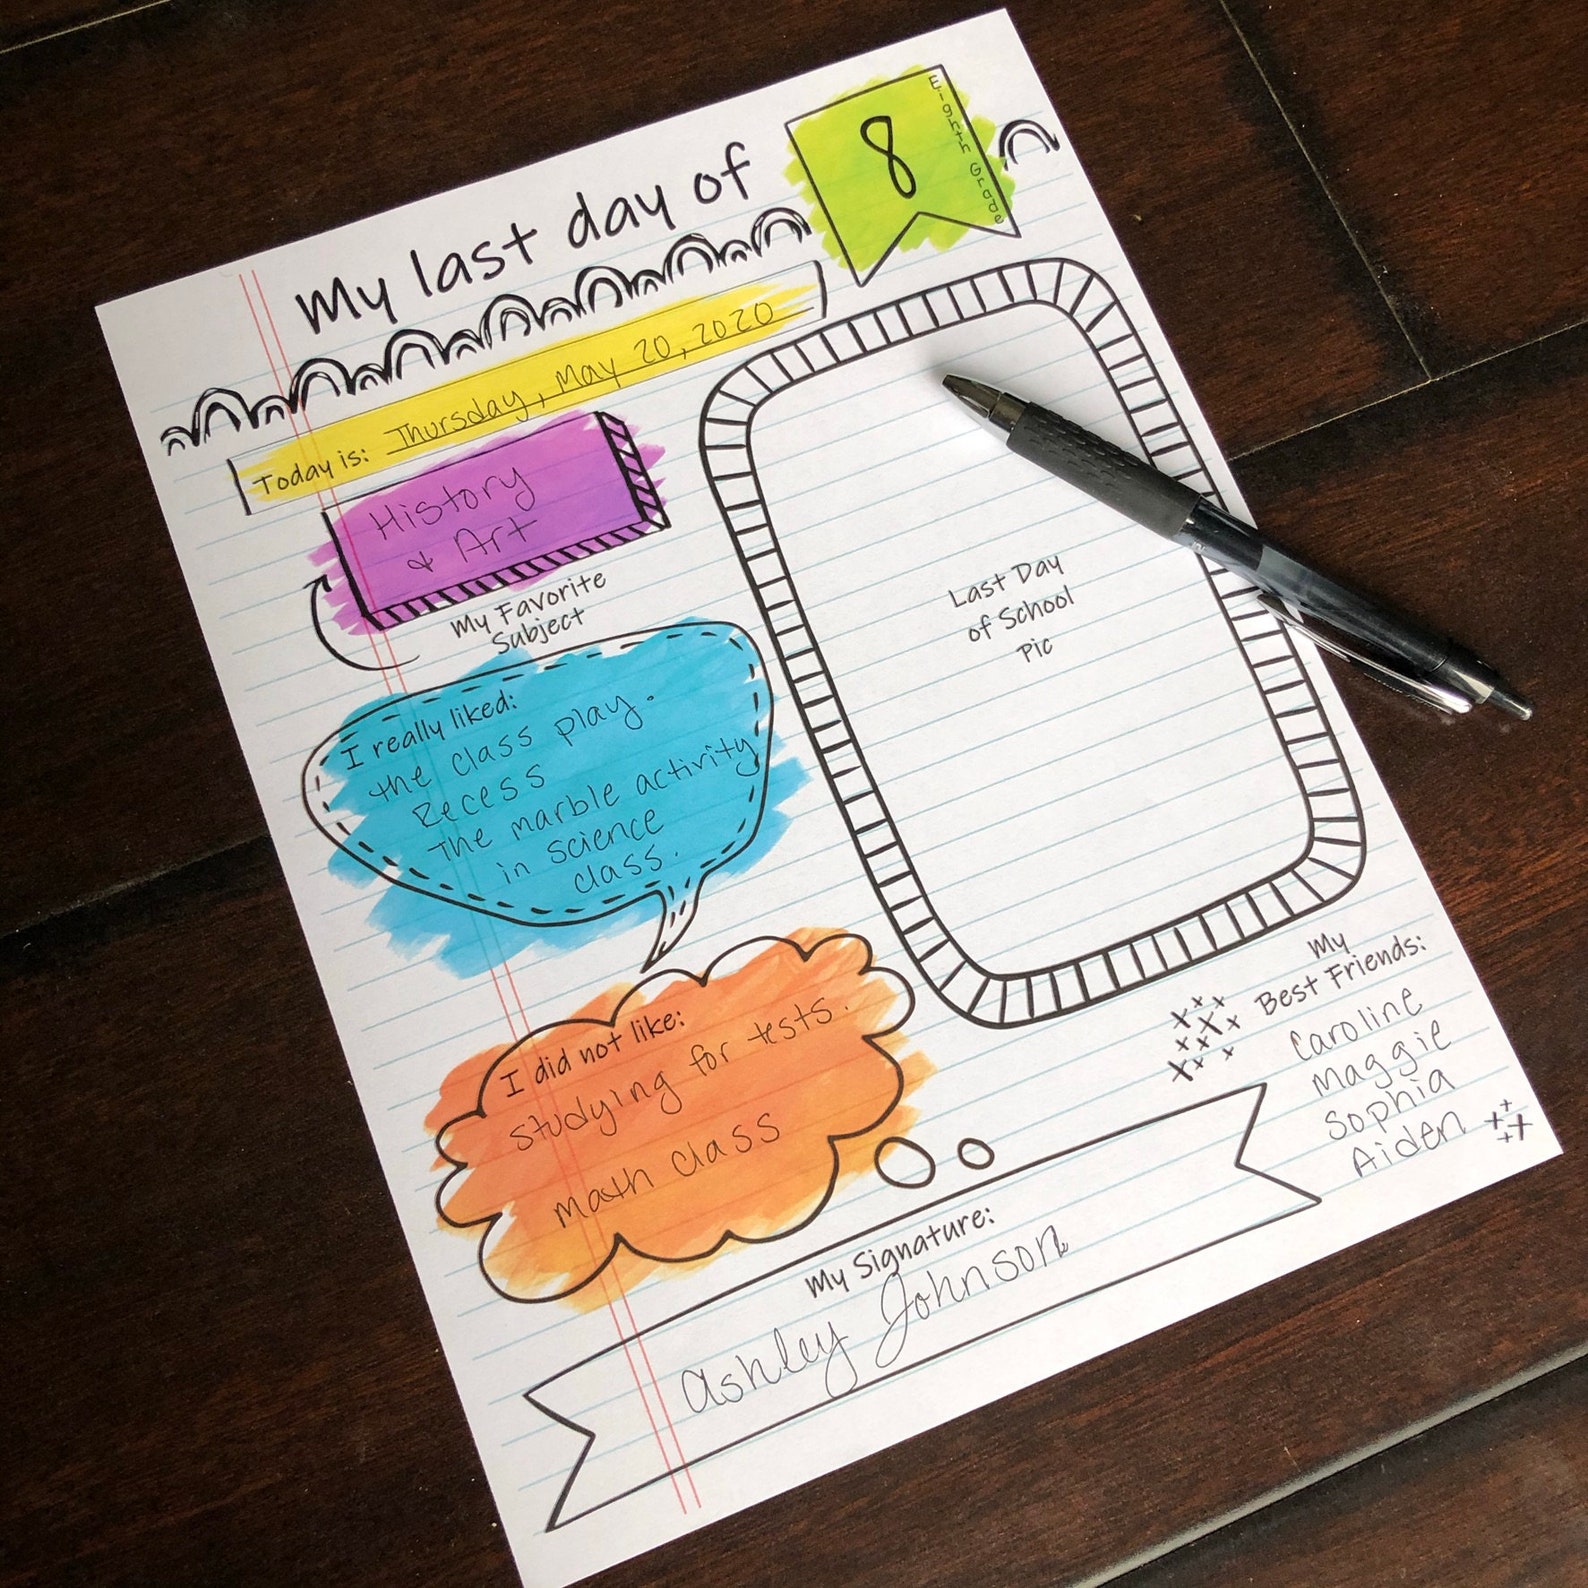 My last day of
8
Eighth Grade
Today is: Thursday, May 20, 2020
History
& Art
My Favorite
Subject
I really liked:
the class play.
Recess
The marble activity
in science
class.
I did not like:
studying for tests.
math class
Last Day
of School
Pic
My
Best Friends:
Caroline
Maggie
Sophia
Aiden
My Signature:
Ashley Johnson